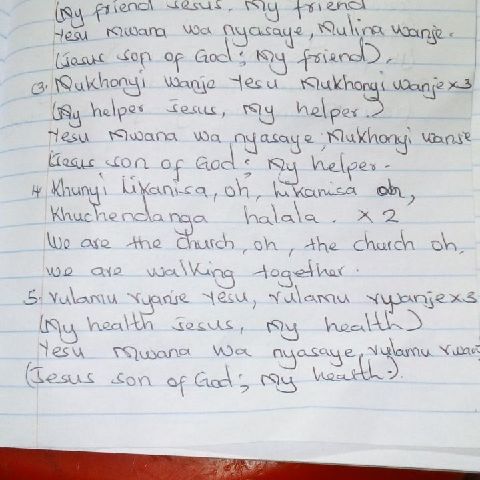 (My friend Jesus, My friend
Yesu Mwana wa nyasaye, Mulina wanje.
(Jesus son of God; My friend).
(3. Mukhonyi wanje Yesu Mukhonyi wanje x3
(My helper Jesus, My helper.)
Yesu Mwana wa nyasaye, Mukhonyi wanje
(Jesus son of God; My helper.
4 Khunyi Likanisa, oh, Likanisa oh,
Khuchendanga halala. x 2
We are the church, oh, the church oh,
we are walking together.
5. rulamu rwanje Yesu, rulamu rwanje x3
(My health Jesus, My health)
Yesu Mwana wa nyasaye, rulamu
(Jesus son of God; My health.).